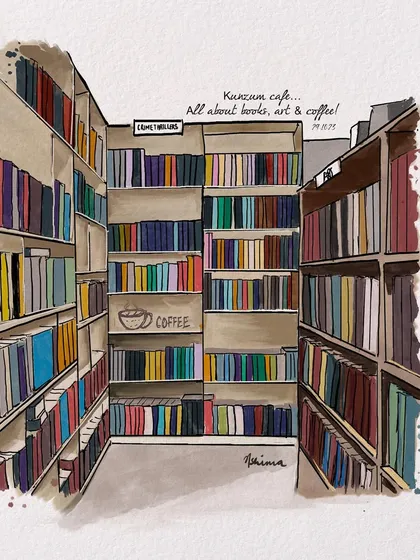 Kunzum cafe...
All about books, art & coffee!
29.10.23
CRIME THRILLERS
ART
COFFEE
Ashima